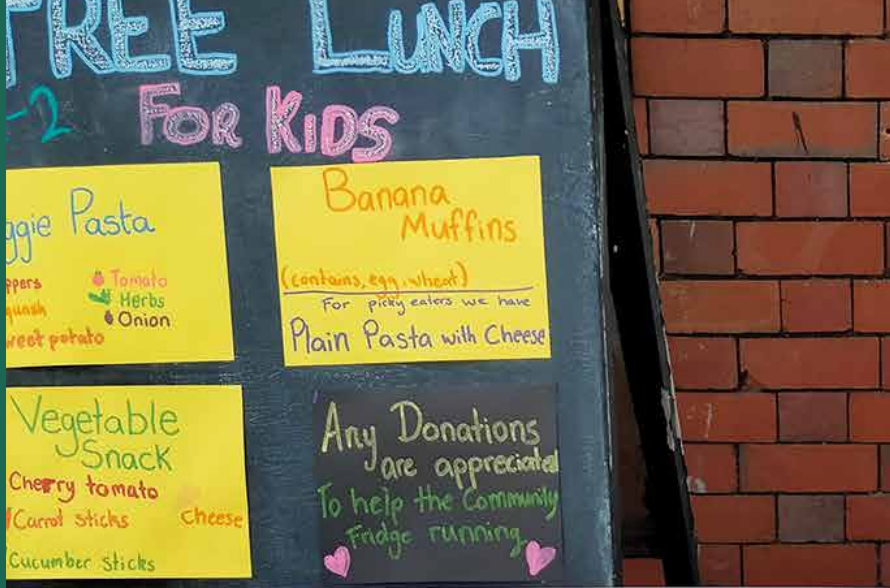 FREE LUNCH
-2
FOR KIDS
Pasta
Tomato
Herbs
Onion
potato
Banana
Muffins
(contains, egg, wheat)
For picky eaters we have
Plain Pasta with Cheese
Vegetable
Snack
Cherry tomato
Carrot sticks cheese
Cucumber sticks
Any Donations
are appreciated
To help the Community
Fridge running